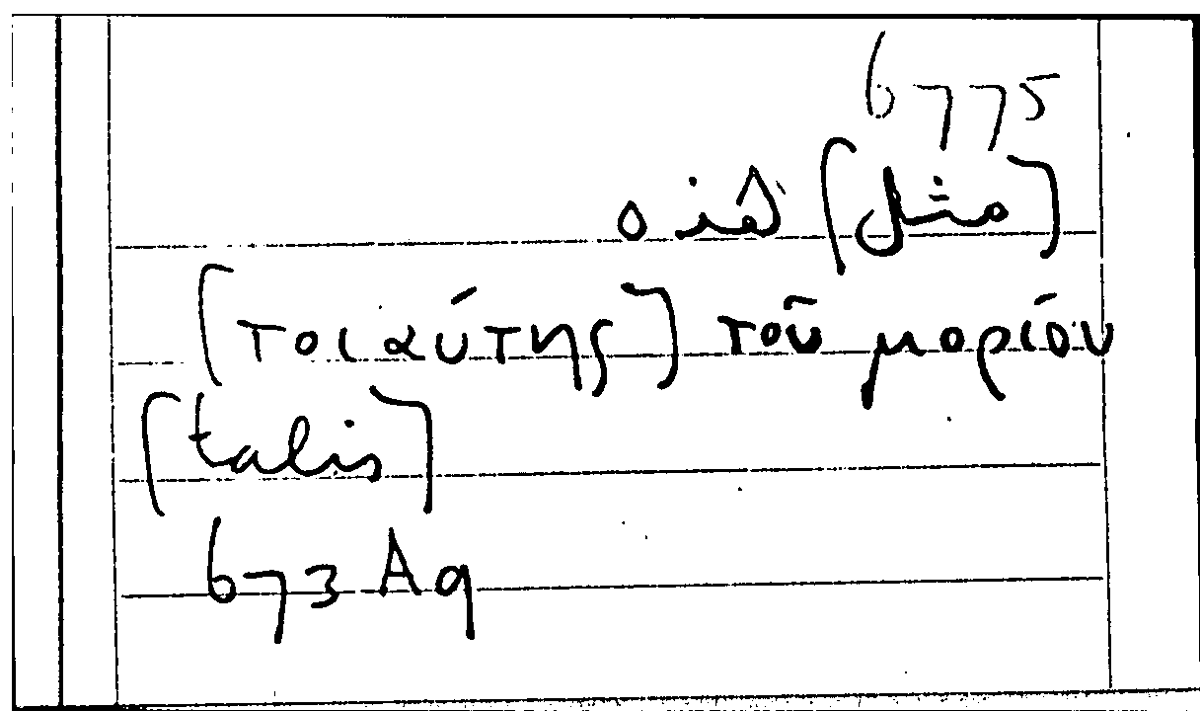 6775
[مثل] هذه
[τοιαύτης] τοῦ μορίου
[talis]
673 A9